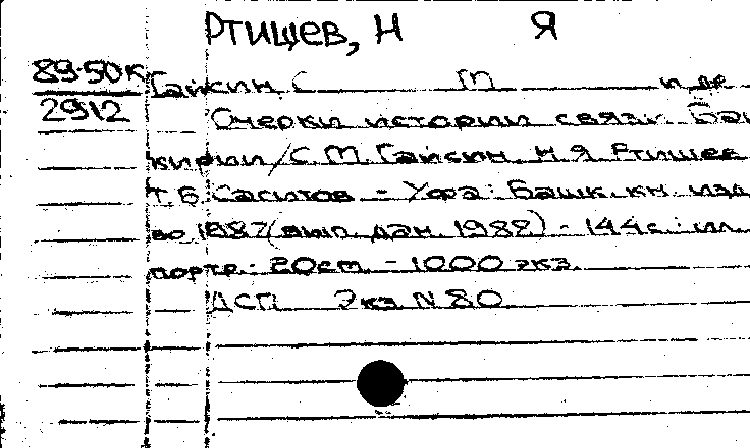 Ртищев, Н Я
89-50к Гайсин, С М и др
2912 Очерки истории связи Баш
кирии / С. М. Гайсин, Н Я Ртищев
Т. Б. Саситов. - Уфа: Башк. кн. изд
во 1987 (вып. дан. 1988) - 144 с.: ил.
портр.: 20 cm. - 1000 экз.
ДСП Экз. N 80